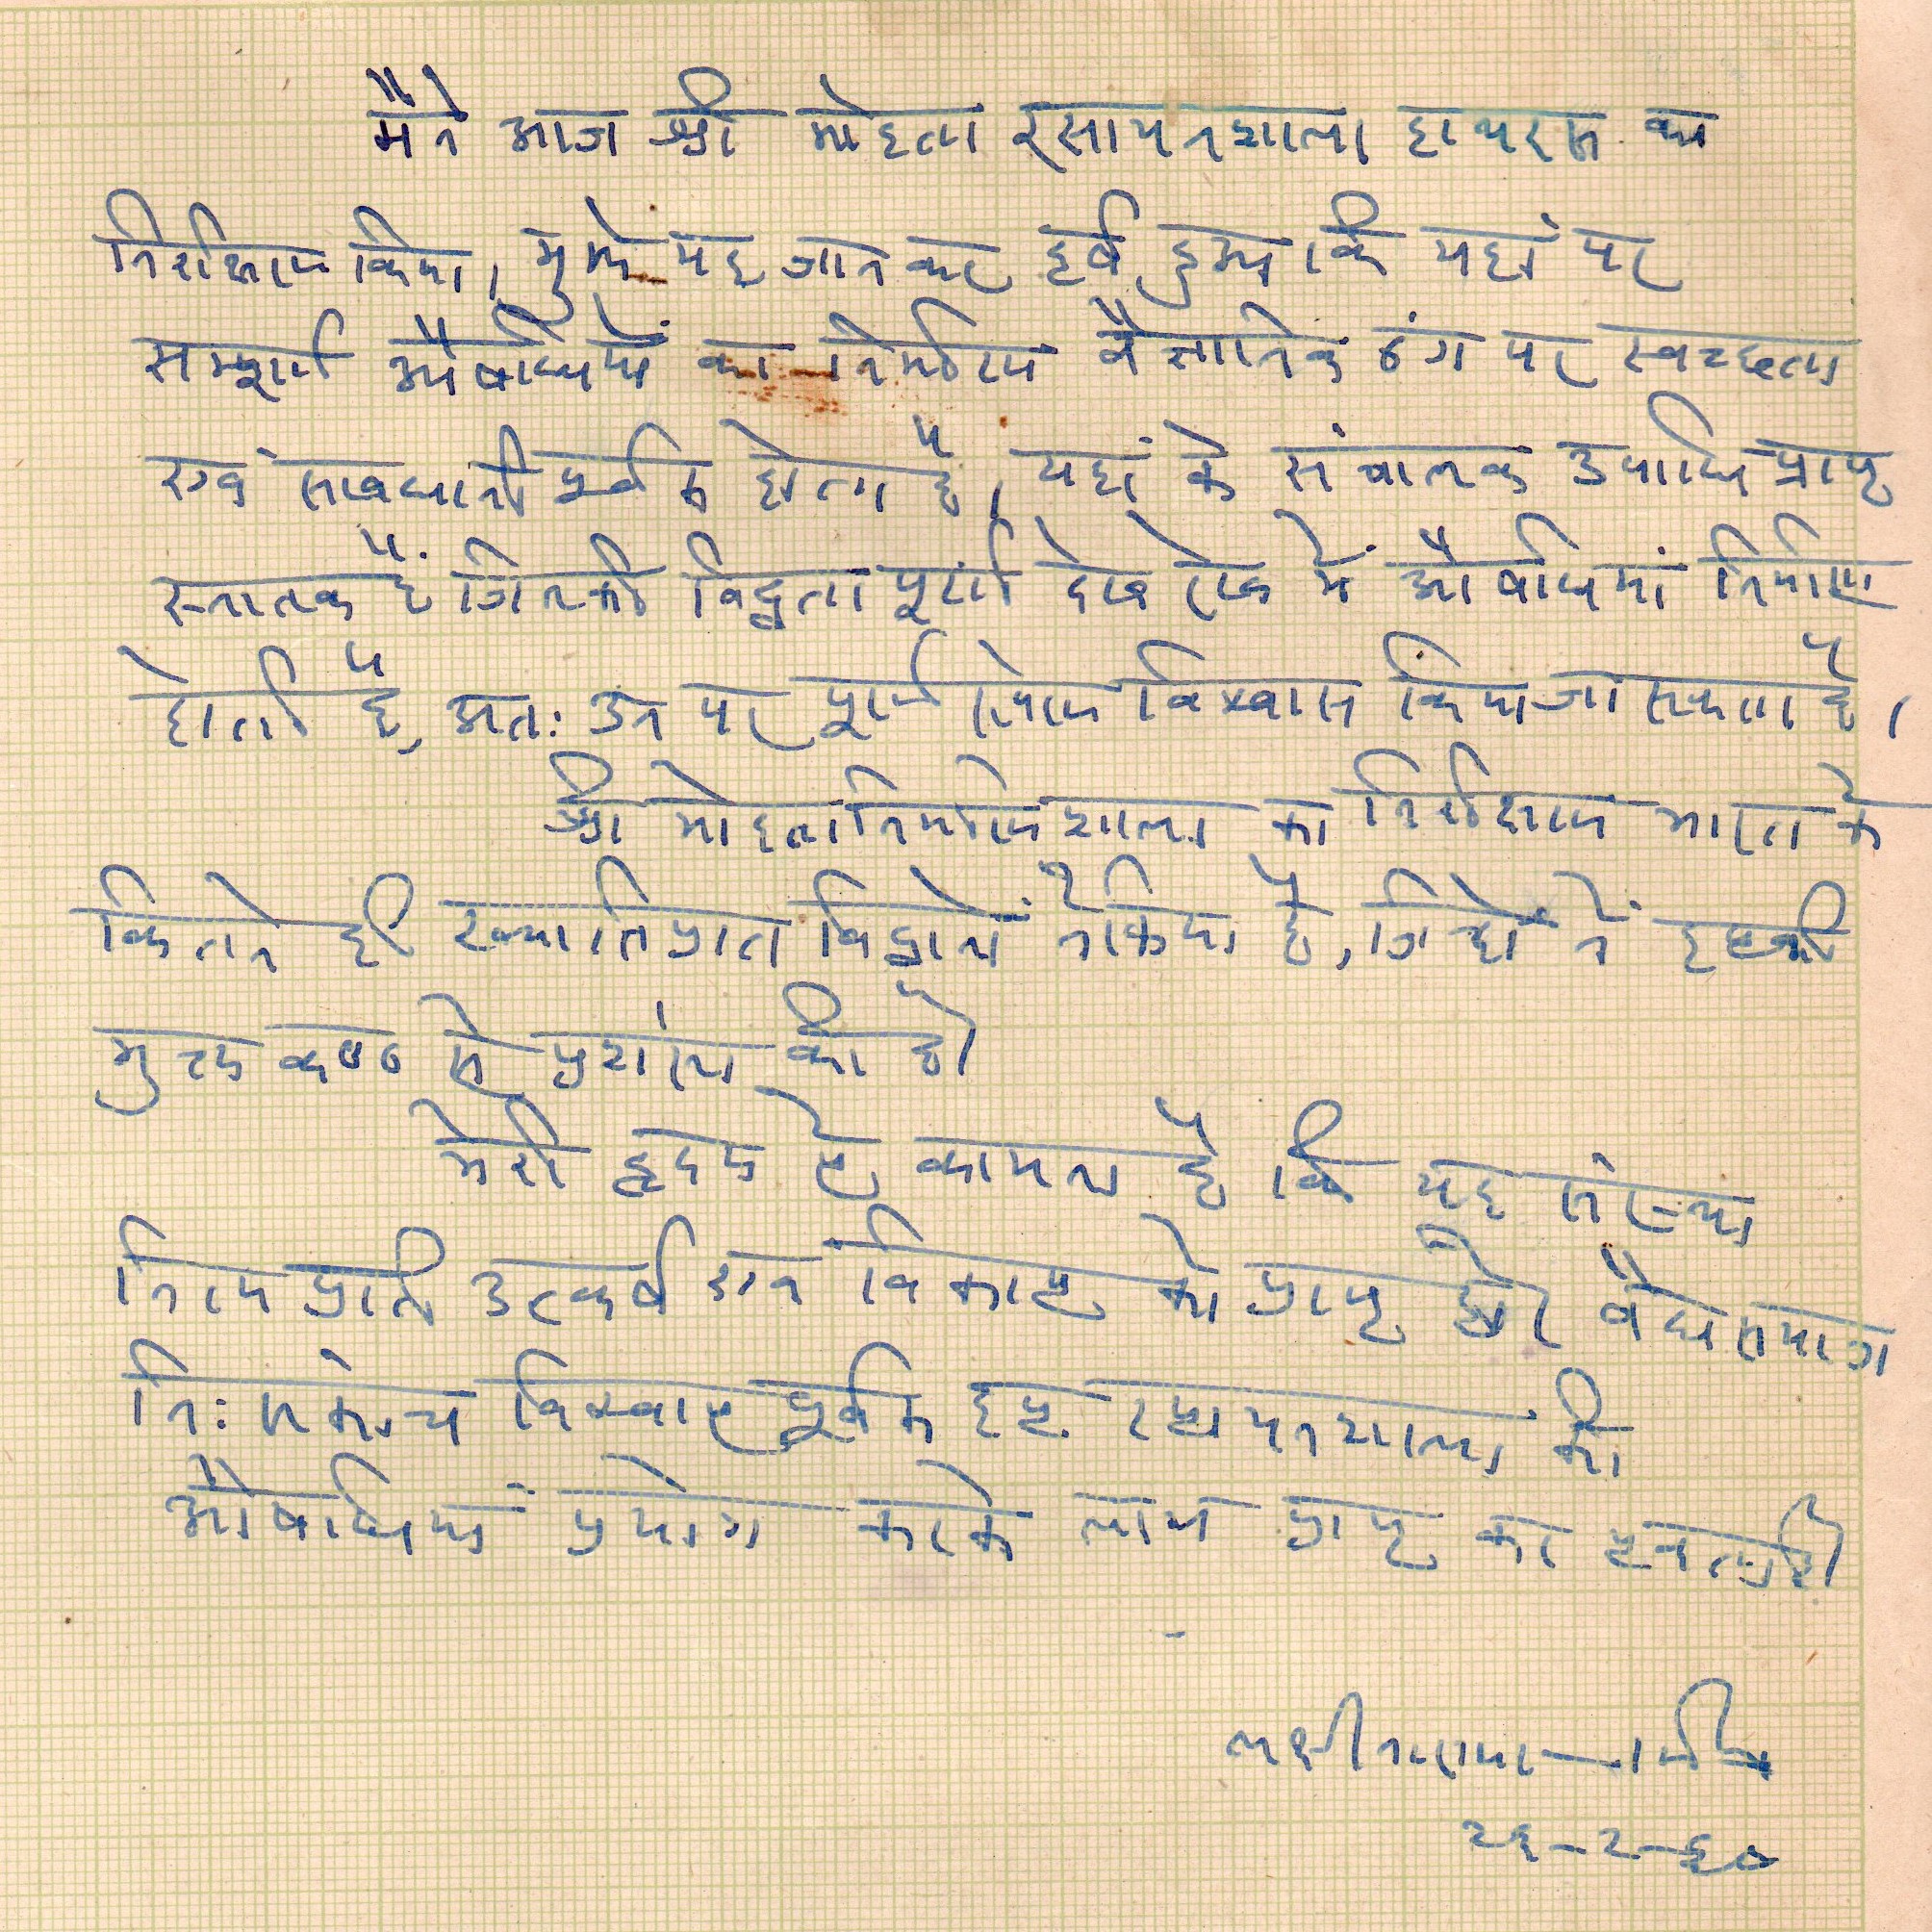 मैंने आज श्री मोहता रसायनशाला हाथरस का
निरीक्षण किया, मुझे यह जानकर हर्ष हुआ कि यहां पर
सम्पूर्ण औषधियों का निर्माण वैज्ञानिक ढंग पर स्वच्छता
एवं सावधानी पूर्वक होता है, यहां के संचालक उपाधि प्राप्त
स्नातक हैं जिनकी विद्वता पूर्ण देख रेख में औषधियां निर्माण
होती हैं, अतः उन पर पूर्णरूपेण विश्वास किया जा सकता है,
श्री मोहता निर्माणशाला का निरीक्षण भारत के
कितने ही ख्याति प्राप्त विद्वानों ने किया है, जिन्हों ने इसकी
मुक्त कण्ठ से प्रशंसा की है।
मेरी हृदय से कामना है कि यह संस्था
नित्य प्रति उत्कर्ष एवं विकास को प्राप्त हो और वैद्य समाज
निःसंकोच विश्वास पूर्वक इस रसायनशाला की
औषधियां प्रयोग करके लाभ प्राप्त कर
लक्ष्मीनारायण
२६-२-६०